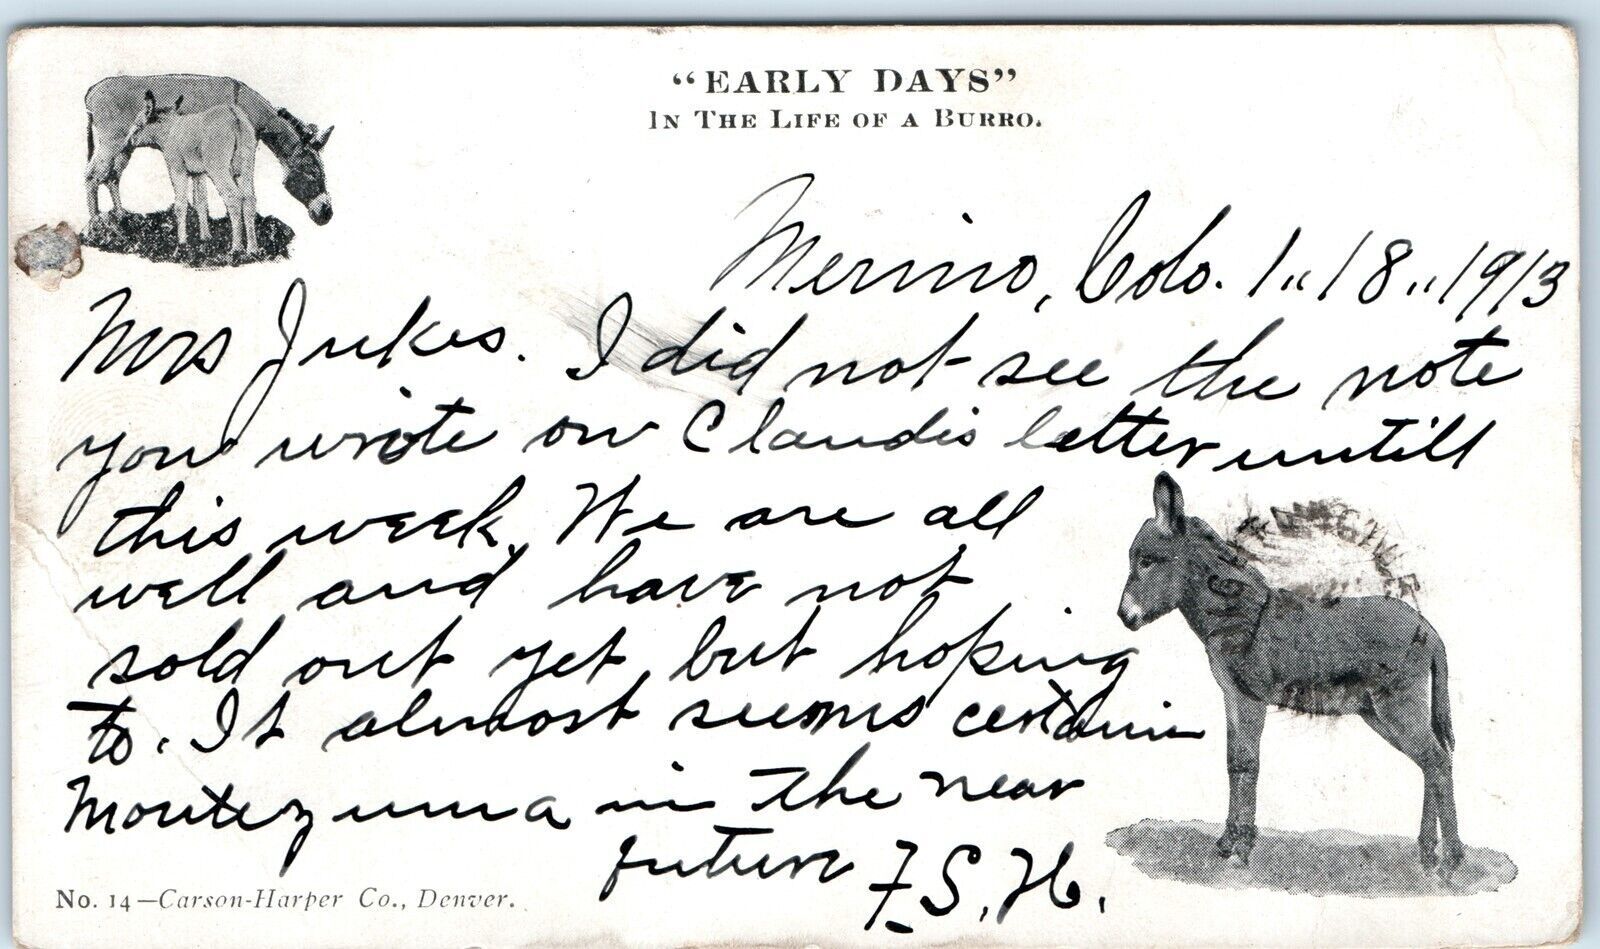 "EARLY DAYS"
IN THE LIFE OF A BURRO.
Merino, Colo. 1 " 18 " 1913
Mrs Jukes. I did not see the note
you wrote on Claudis letter untill
this week. We are all
well and have not
sold out yet, but hoping
to. It almost seems certain
Montezuma in the near
future F. S. H.
No. 14—Carson-Harper Co., Denver.